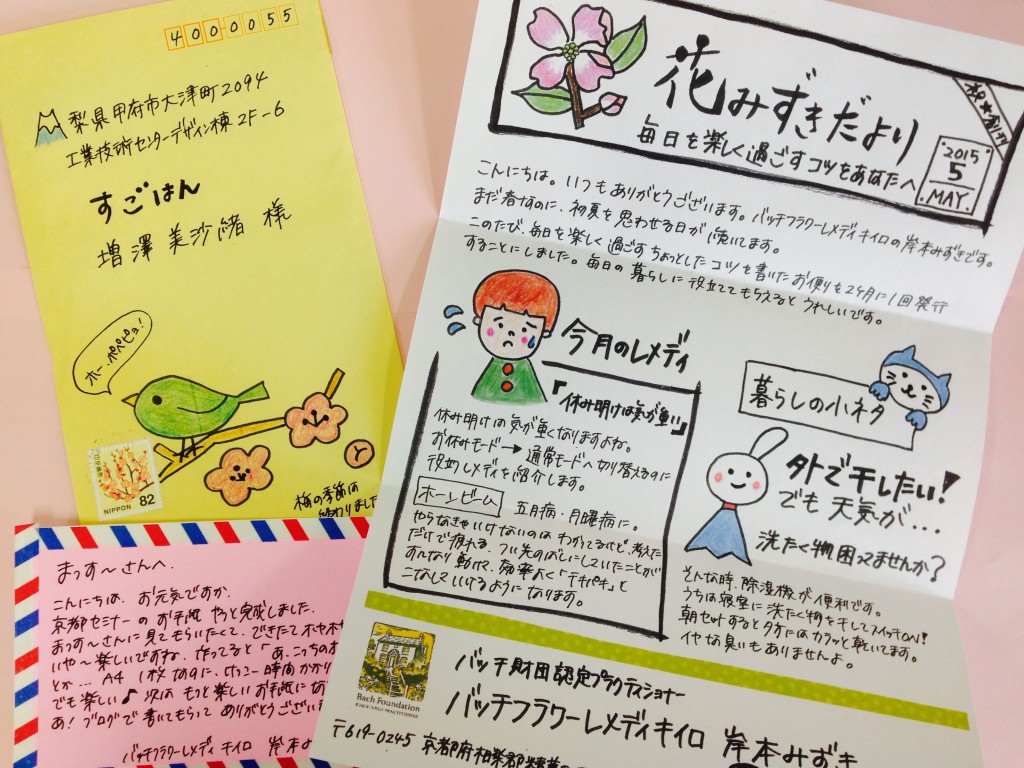 4000055
梨県甲府市大津町2094
工業技術センターデザイン棟2F-6
すごはん
増澤 美沙緒 様
ホー、ポペピョ!
82
NIPPON
と
梅の季節は
終わりました
まっすーさんへ、
こんにちは、お元気ですか。
京都セミナーのお手紙 やっと完成しました。
まっすーさんに見てもらいたくて、できたてホヤホヤ
いや〜楽しいですね。作ってると「あ、こっちのホ
とか... A4 1枚なのに、けっこー時間かかり
でも楽しい♪ 次は もっと楽しいお手紙に
あ!ブログで書いてもらって ありがとうござい
バッチフラワーレメディ キイロ 岸本み
花みずきだより
毎日を楽しく過ごすコツをあなたへ
祝★創刊
2015
5
MAY.
こんにちは。いつもありがとうございます。バッチフラワーレメディキイロの岸本みずきです。
まだ春なのに、初夏を思わせる日が続いてます。
このたび、毎日を楽しく過ごすちょっとしたコツを書いたお便りを2ヶ月に1回発行
することにしました。毎日の暮らしに役立ててもらえるとうれしいです。
今月のレメディ
「休み明けは気が重い」
休み明けは気が重くなりますよね。
お休みモード→通常モードへ切り替えるのに
役立つレメディを紹介します。
ホーンビーム 五月病・月曜病に。
やらなきゃいけないのは わかってるけど、考えた
だけで疲れる、つい先のばしにしていたことが
すんなり動けて、効率よく「テキパキ」と
こなしていけるようになります。
暮らしの小ネタ
外で干したい!
でも 天気が...
洗たく物困ってませんか?
そんな時、除湿機が便利です。
うちは寝室に洗たく物を干してスイッチON!
朝セットすると夕方にはカラッと乾いてます。
イヤな臭いもありませんよ。
Bach Foundation
バッチ財団認定プラクティショナー
バッチフラワーレメディ キイロ 岸本みずき
〒619-0245 京都府相楽郡精華